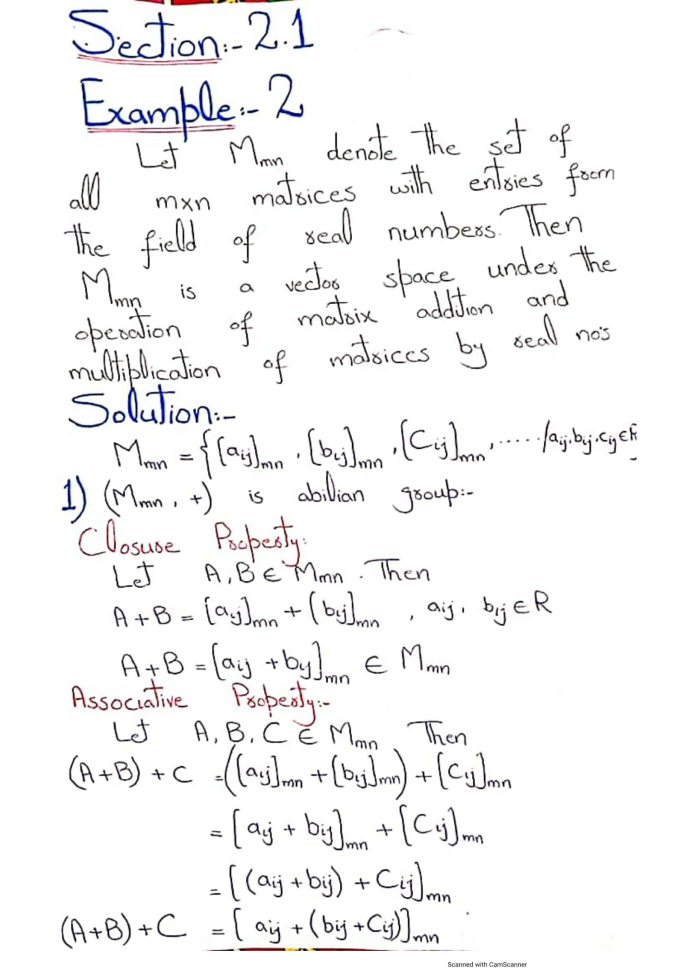 Section:- 2.1
Example:- 2
Let Mmn denote the set of
all mxn matrices with entries from
the field of real numbers. Then
Mmn is a vector space under the
operation of matrix addtion and
multiplication of matrices by real no's
Solution:-
Mmn = {[aij]mn , [bij]mn , [Cij]mn , ..... /aij, bij, cij ∈ R
1) (Mmn , +) is abilian group:-
Closure Property:
Let A, B ∈ Mmn . Then
A + B = [aij]mn + [bij]mn , aij, bij ∈ R
A + B = [aij + bij]mn ∈ Mmn
Associative Property:-
Let A, B, C ∈ Mmn Then
(A+B) + C = ([aij]mn + [bij]mn) + [Cij]mn
= [aij + bij]mn + [Cij]mn
= [(aij + bij) + Cij]mn
(A+B) + C = [aij + (bij + Cij)]mn
Scanned with CamScanner